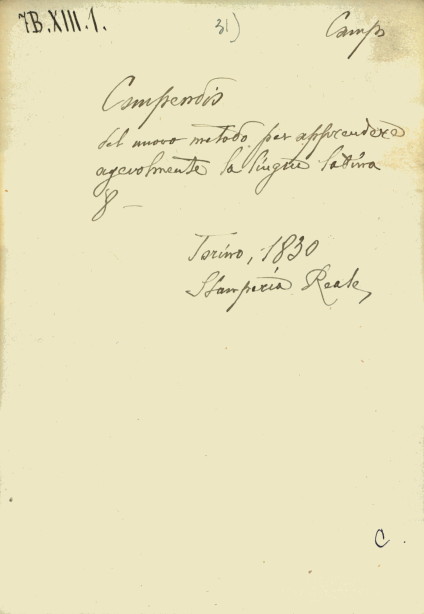 7B.XIII.1. 31) Comp
Compendio
del nuovo metodo per apprendere
agevolmente la lingua latina
8 -
Torino, 1830
Stamperia Reale
C.